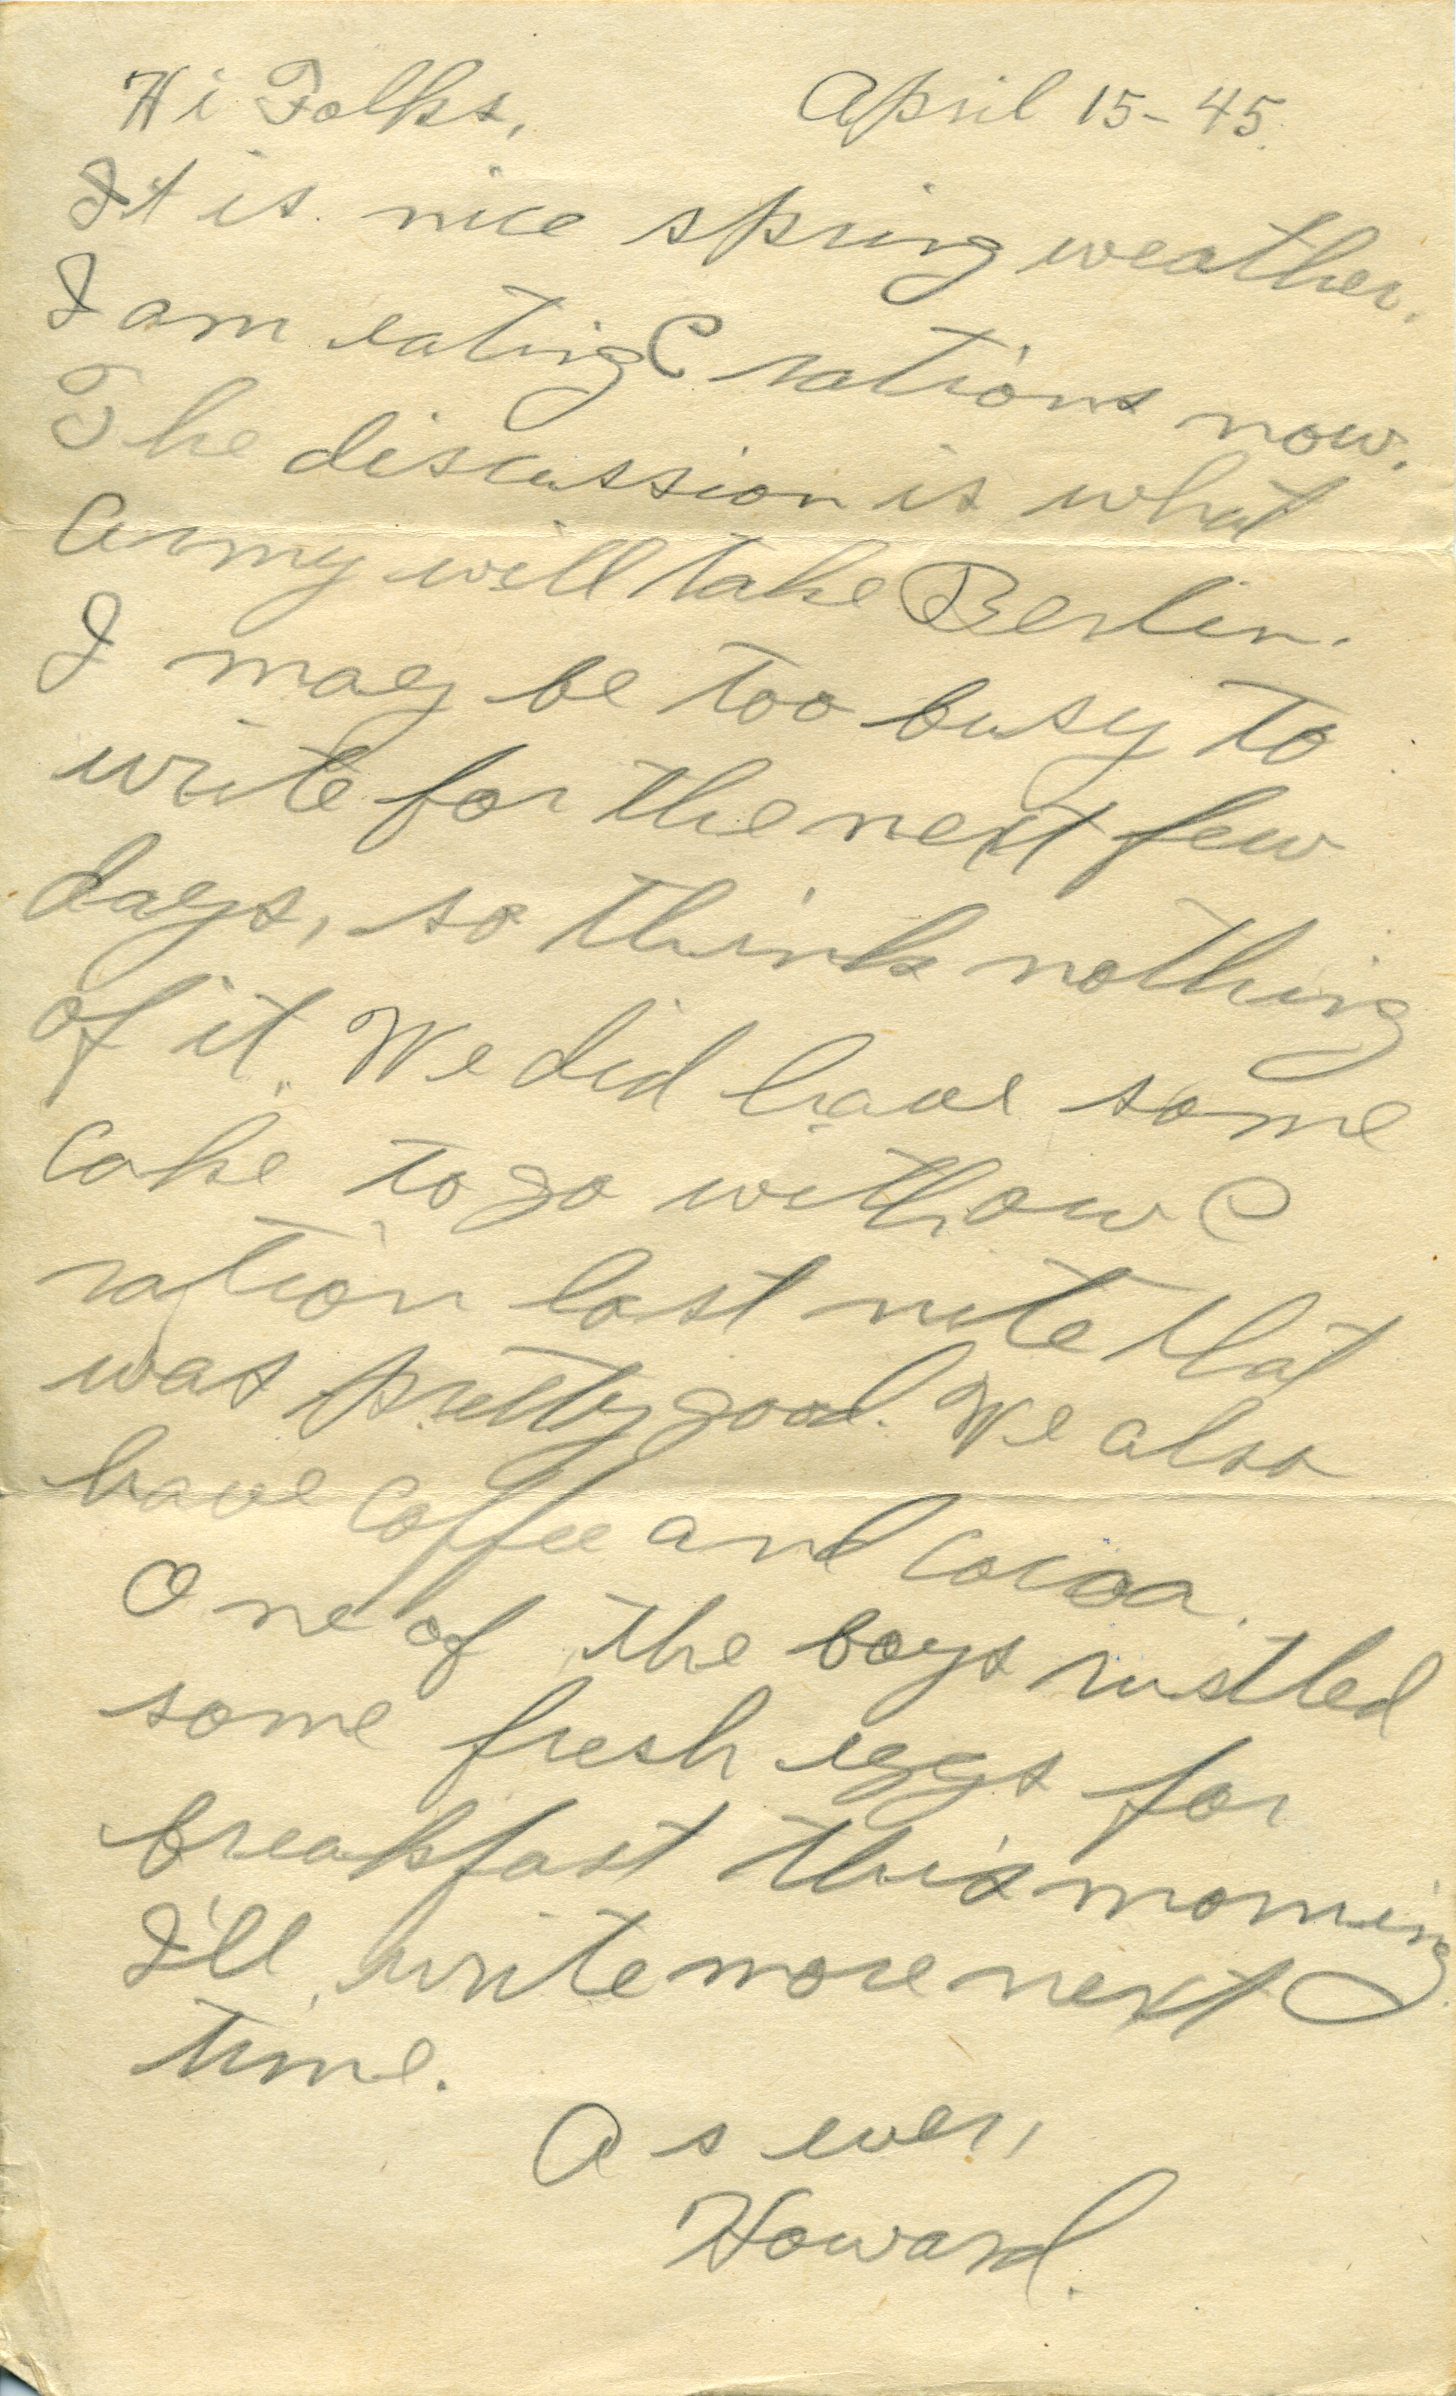 Hi Folks, April 15-45.
It is nice spring weather.
I am eating C rations now.
The discussion is what
army will take Berlin.
I may be too busy to
write for the next few
days, so think nothing
of it. We did have some
cake to go with our C
ration last nite that
was pretty good. We also
have coffee and cocoa.
One of the boys rustled
some fresh eggs for
breakfast this morning.
I'll write more next
time.
As ever,
Howard.